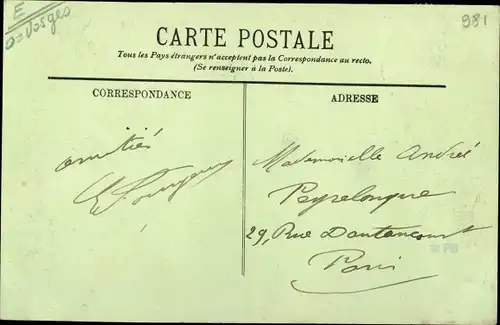 E
Vosges
981
CARTE POSTALE
Tous les Pays étrangers n'acceptent pas la Correspondance au recto.
(Se renseigner à la Poste).
CORRESPONDANCE
ADRESSE
amitiés
Mademoiselle André
Peyrelongue
29, Rue Dautancourt
Paris